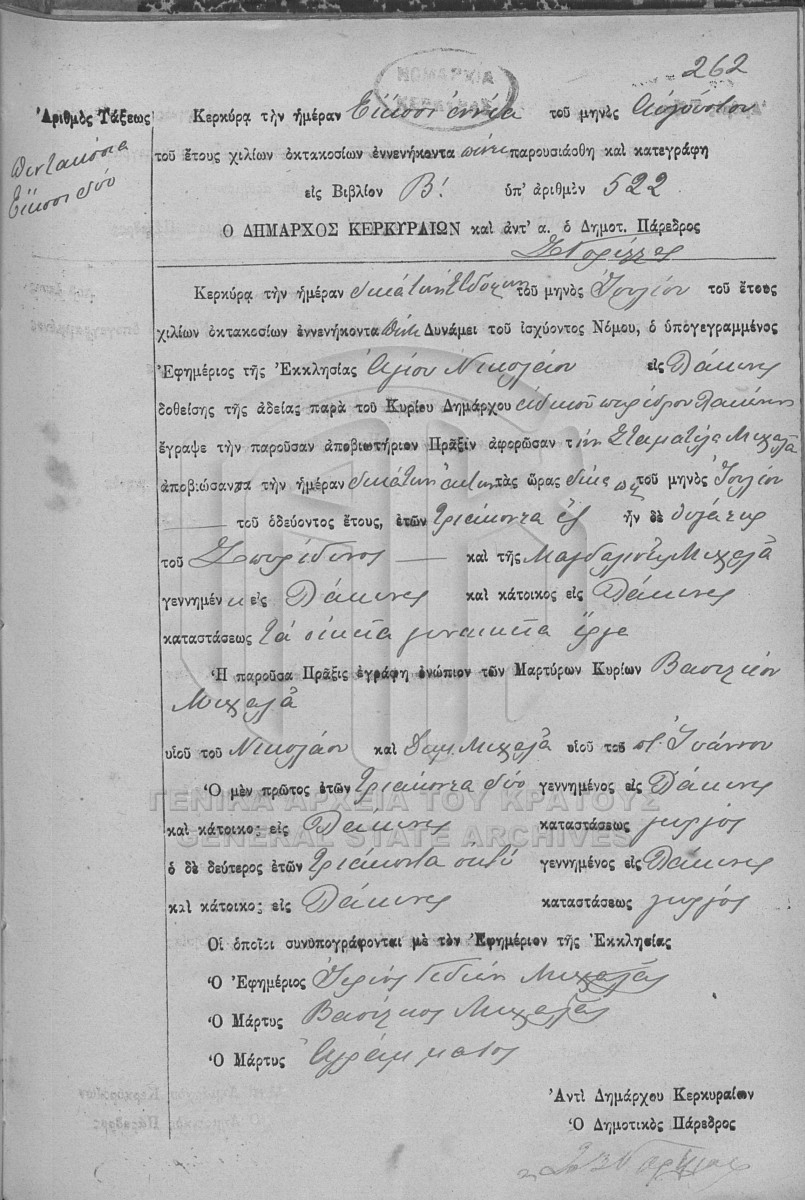 262
ΝΟΜΑΡΧΙΑ
ΚΕΡΚΥΡΑΣ
Ἀριθμὸς Τάξεως
Πεντακόσια
Εἴκοσι δύο
Κερκύρᾳ τὴν ἡμέραν Εἴκοσι ἐννέα τοῦ μηνὸς Αὐγούστου
τοῦ ἔτους χιλίων ὀκτακοσίων ἐννενήκοντα πέντε παρουσιάσθη καὶ κατεγράφη
εἰς Βιβλίον Β! ὑπ' ἀριθμὸν 522
Ο ΔΗΜΑΡΧΟΣ ΚΕΡΚΥΡΑΙΩΝ καὶ ἀντ' α. ὁ Δημοτ. Πάρεδρος
Κερκύρᾳ τὴν ἡμέραν δεκάτην Ἑβδόμην τοῦ μηνὸς Ἰουλίου τοῦ ἔτους
χιλίων ὀκτακοσίων ἐννενήκοντα πέντε Δυνάμει τοῦ ἰσχύοντος Νόμου, ὁ ὑπογεγραμμένος
Ἐφημέριος τῆς Ἐκκλησίας Ἁγίου Νικολάου εἰς Λάκωνες
δοθείσης τῆς ἀδείας παρὰ τοῦ Κυρίου Δημάρχου εἰδικοῦ παρέδρου Λακώνων
ἔγραψε τὴν παροῦσαν ἀποβιωτήριον Πρᾶξιν ἀφορῶσαν τὴν Σταματέλα Μιχαλᾶ
ἀποβιώσασα τὴν ἡμέραν δεκάτην ἕκτην τὰς ὥρας δέκα πμ τοῦ μηνὸς Ἰουλίου
τοῦ ὁδεύοντος ἔτους, ἐτῶν τριάκοντα ἕξ ἦν δὲ θυγάτηρ
τοῦ Σπυρίδωνος καὶ τῆς Μαγδαληνῆς Μιχαλᾶ
γεννημένη εἰς Λάκωνες καὶ κάτοικος εἰς Λάκωνες
καταστάσεως τὰ οἰκεῖα γυναικεῖα ἔργα
Ἡ παροῦσα Πρᾶξις ἐγράφη ἐνώπιον τῶν Μαρτύρων Κυρίων Βασιλείου
Μιχαλᾶ
υἱοῦ τοῦ Νικολάου καὶ Δημ. Μιχαλᾶ υἱοῦ τοῦ π. Ἰωάννου
Ὁ μὲν πρῶτος ἐτῶν τριάκοντα δύο γεννημένος εἰς Λάκωνες
ΓΕΝΙΚΑ ΑΡΧΕΙΑ ΤΟΥ ΚΡΑΤΟΥΣ
καὶ κάτοικος εἰς Λάκωνες καταστάσεως γεωργός
GENERAL STATE ARCHIVES
ὁ δὲ δεύτερος ἐτῶν τριάκοντα ὀκτώ γεννημένος εἰς Λάκωνες
καὶ κάτοικος εἰς Λάκωνες καταστάσεως γεωργός
Οἱ ὁποῖοι συνυπογράφονται μὲ τὸν Ἐφημέριον τῆς Ἐκκλησίας
Ὁ Ἐφημέριος Ἱερεὺς Μιχαλᾶς
Ὁ Μάρτυς Βασίλειος Μιχαλᾶς
Ὁ Μάρτυς Ἀγράμματος
Ἀντὶ Δημάρχου Κερκυραίων
Ὁ Δημοτικὸς Πάρεδρος